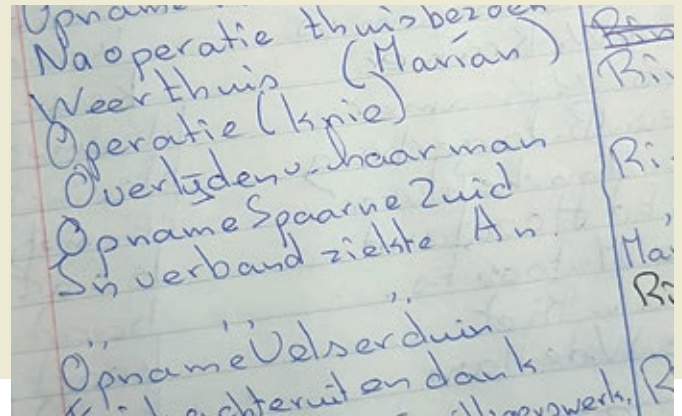 Opname
Na operatie thuisbezoek
Weer thuis (Marian)
Operatie (knie)
Overlijden v. haar man
Opname Spaarne Zuid
In verband ziekte An.
,, ,, ,,
Opname Velserduin
achteruit en dank
Ri
Ri
Ma
Ri
R